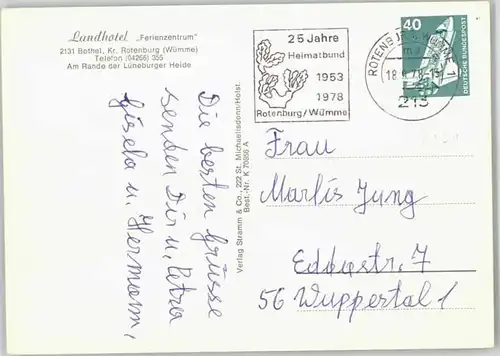 Landhotel „Ferienzentrum"
2131 Bothel, Kr. Rotenburg (Wümme)
Telefon (04266) 355
Am Rande der Lüneburger Heide
25 Jahre
Heimatbund
1953
1978
Rotenburg/Wümme
40
DEUTSCHE BUNDESPOST
213
Die besten Grüsse
senden Dir u. Petra
Gisela u. Hermann,
Verlag Stramm & Co., 222 St. Michaelisdonn/Holst.
Best.-Nr. K 70856 A
Frau
Marlis Jung
Eddastr. 7
56 Wuppertal 1